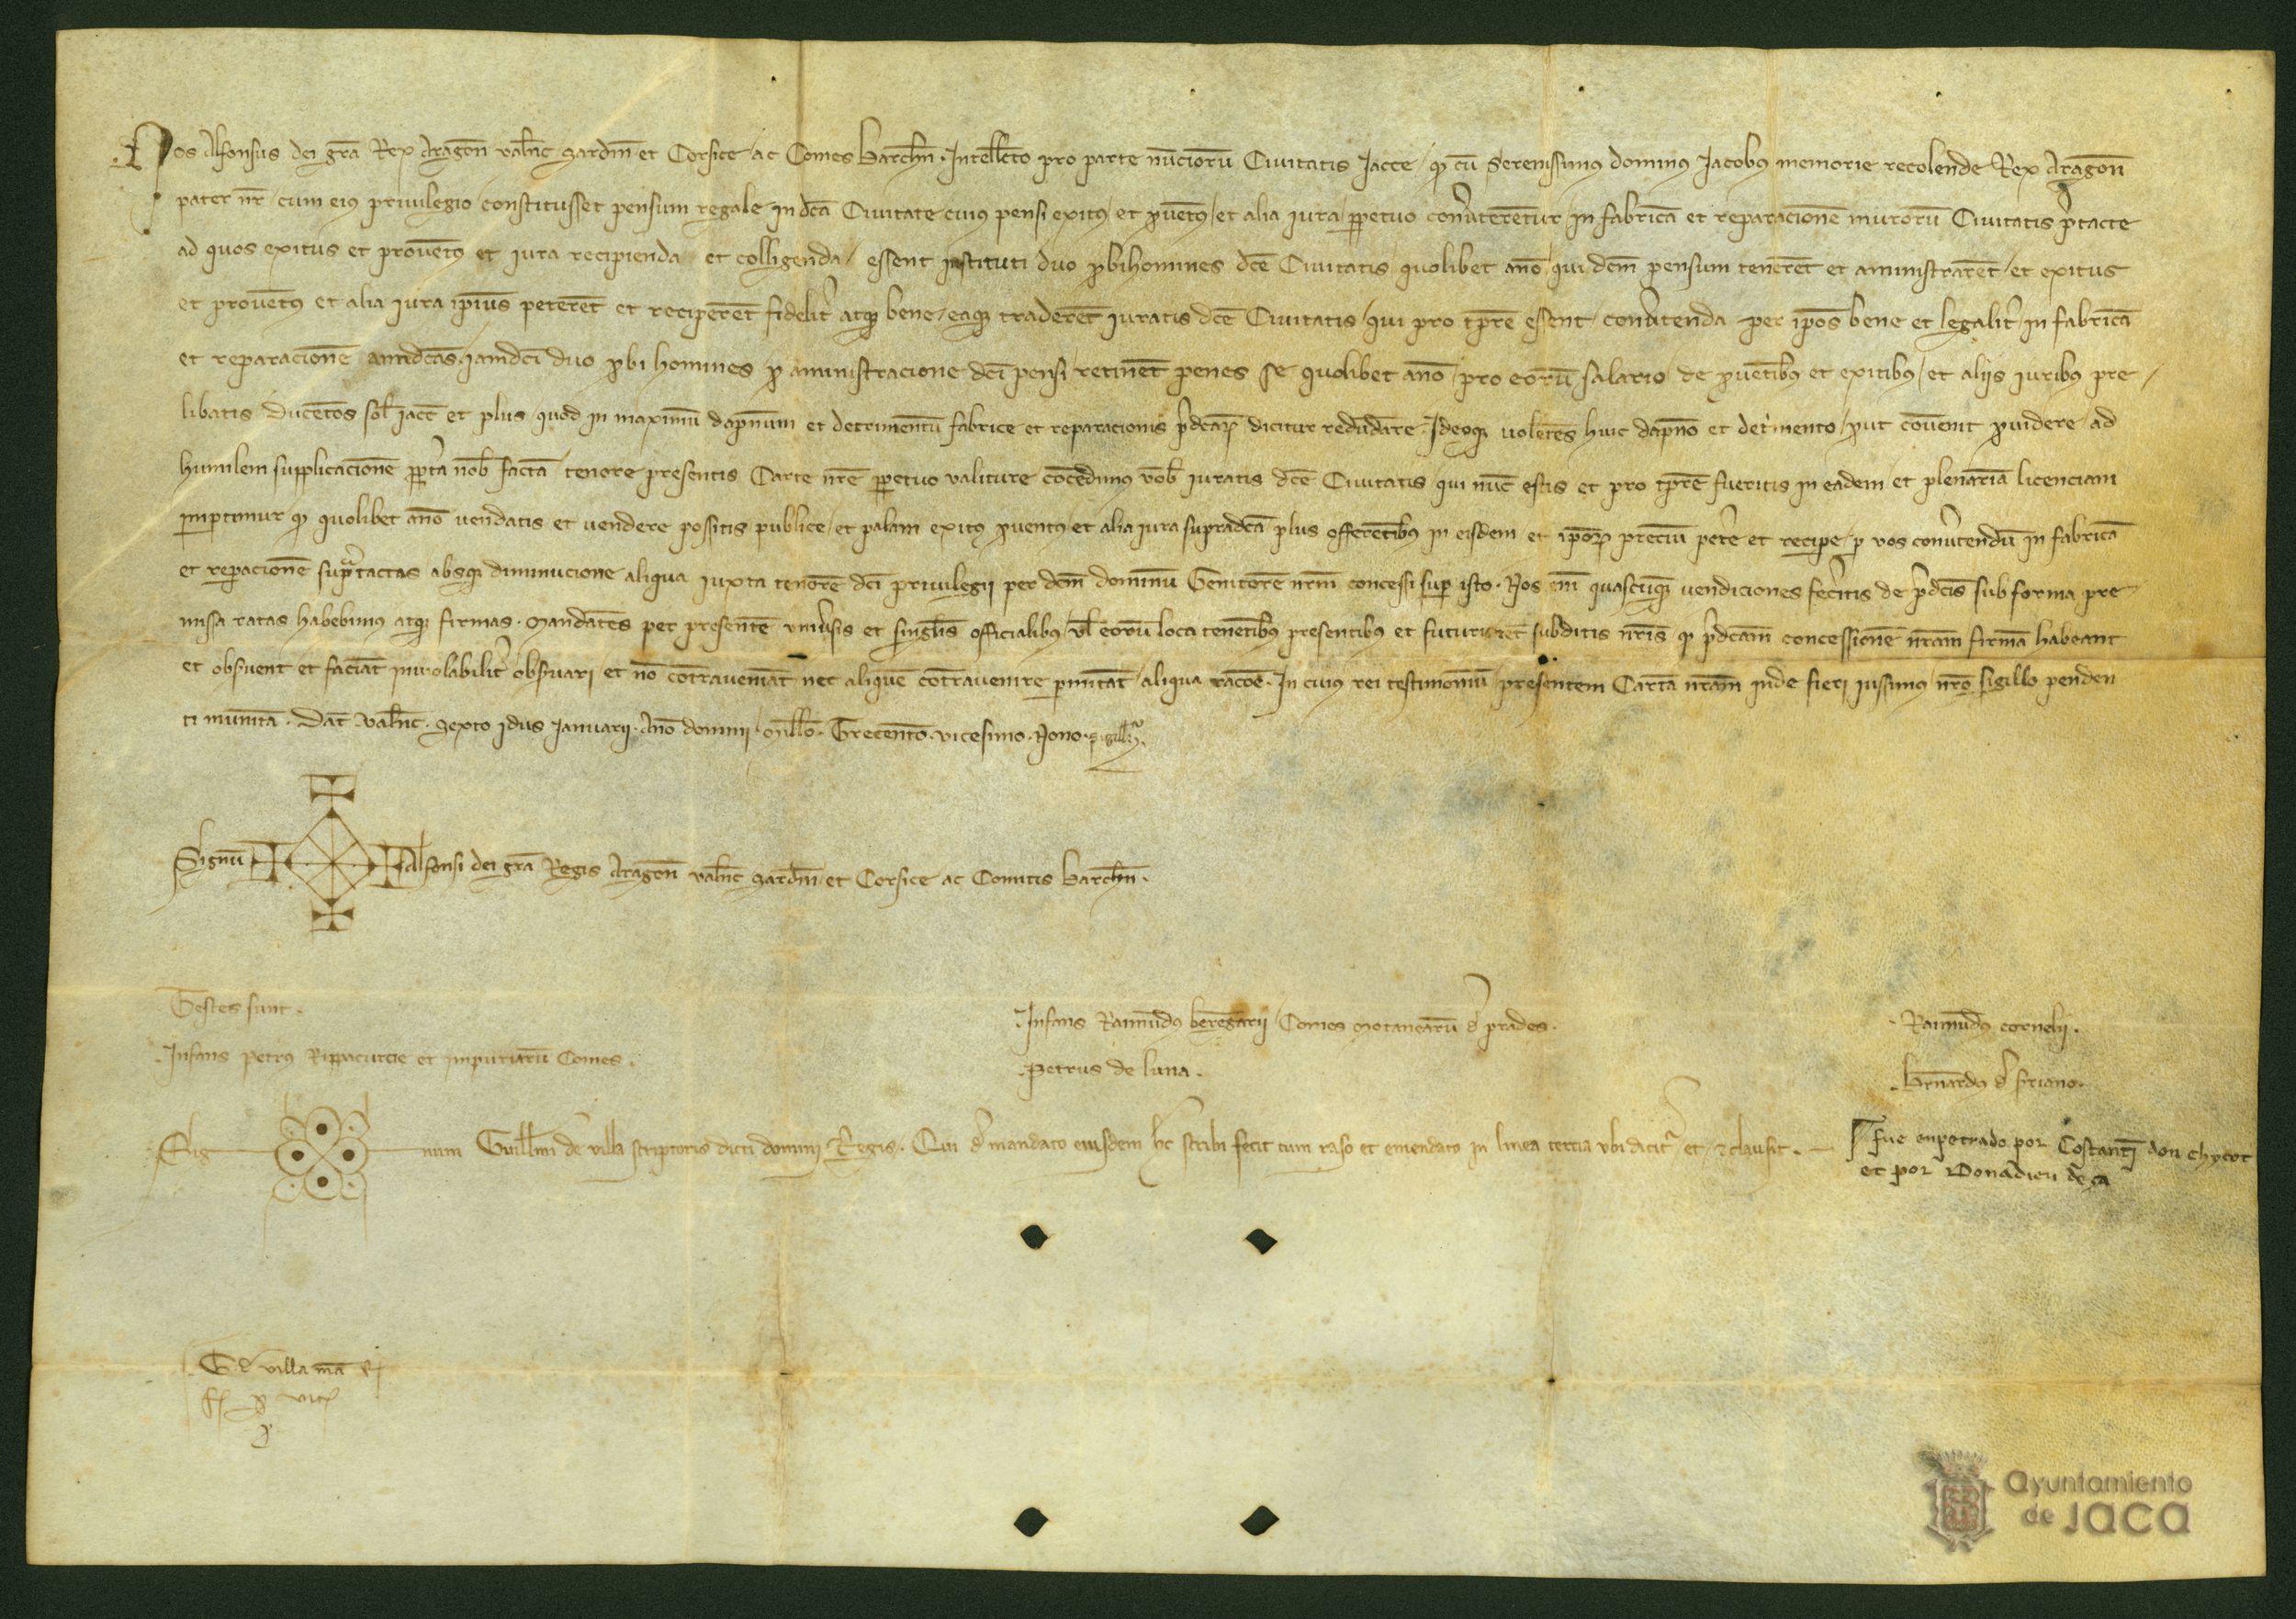 Nos Alfonsus dei gr̄a Rex Aragon̄ valen̄c Sardin̄ et Corsice ac Comes Barchn̄. Intell̄cto pro parte nūciorū Ciuitatis Jacce qđ cū Serenissimus dominus Jacobus memorie recolende Rex Aragon̄
pater nr̄ cum eius priuilegio constituisset pensum regale in dc̄a Ciuitate cuius pensi exitus et ꝓuent9 et alia iura ꝑpetuo conu̓terēt̄ur in fabricā et reparacionē murorū Ciuitatis p̓tacte
ad quos exitus et prouent9 et iura recipienda et colligenda essent instituti duo ꝓbihomines dc̄e Ciuitatis quolibet an̄o qui dc̄m pensum tenerēt et aministrarēt et exitus
et prouent9 et alia iura ip̄ius peterēt et reciperēt fidelit̓ atqꝫ bene eaqꝫ traderēt iuratis dc̄e Ciuitatis qui pro tp̄re essent conu̓tenda per ip̄os bene et legalit̓ in fabricā
et reparacionē antedc̄as. iamdc̄i duo ꝓbi homines ꝓ aministracione dc̄i pensi retinēt penes se quolibet an̄o pro eorū salario de ꝓuētibus et exitibus et aliis iuribus pre
libatis Ducētos sol̄ iacc̄ et plus quod in maximū dapnum et detrimentū fabrice et reparacionis p̓dc̄aꝝ dicitur redūdare. Ideoqꝫ uolētes huic dapno et det̓mento ꝓut cōuenit ꝓuidere ad
humilem supplicacionē ꝓpt̓ea nob̄ factā tenore presentis Carte nr̄e ꝑpetuo valiture cōcedimus vob̄ iuratis dc̄e Ciuitatis qui nūc estis et pro tp̄re fueritis in eadem et plenariā licenciam
impertimur qđ quolibet an̄o vendatis et vendere possitis publice et palam exitus ꝓuentus et alia iura supradc̄a plus offerētibus in eisdem et ip̄oꝝ preciū pet̓e et recipe ꝑ vos conu̓tendū in fabricā
et reparacionē supra̓tactas absqꝫ diminucione aliqua iuxta tenorē dc̄i priuilegii per dc̄m dominū Genitorē nr̄m concessi super isto. Nos em̄ quascūqꝫ vendiciones fec̓itis de p̓dc̄is sub forma pre
missa ratas habebimus atqꝫ firmas. Mandātes per presentē vniu̓sis et singl̄is officialibus vl̄ eorū loca tenētibus presentibus et futuris et subditis nr̄is qđ p̓dc̄am concessionē nr̄am firmā habeant
et obseruent et faciāt inuiolabilit̓ obseruari et nō cōtraueniāt nec aliquē cōtrauenire ꝑmittāt aliqua racōe. In cuius rei testimoniū presentem Cartā nr̄am inde fieri iussimus nr̄o sigillo penden
ti munitā. Dat̄ Valen̄c. Sexto idus Januarii. Ān̄o domini Mill̄o. Trecentō. vicesimo. Nono. sigill̄
Signū Alfonsi dei gr̄a Regis Aragon̄ valen̄c Sardin̄ et Corsice ac Comitis Barchn̄.
Testes sunt.
Infans Petrus Rippacurcie et impuriarū Comes.
Infans Raimūdus berēgarii Comes Motanearū đ prades.
Petrus de luna.
Raimūdus cornelii.
Bernardus đ siriano.
Sig num Guill̄mi de villa scriptoris dicti domini Regis. Qui đ mandato eiusdem h̄c scribi fecit cum raso et emendato in linea tercia ubi dicit̓ et ⁊ clausit.
fue enpetrado por Costantī don chycot
et por Donadieu de ca
G đ villa